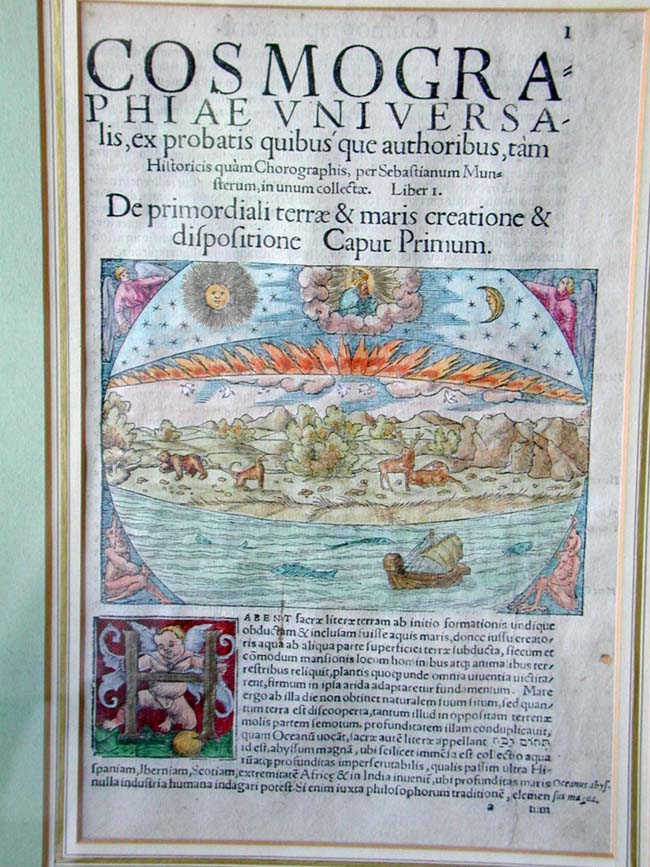 1
COSMOGRA-
PHIAE VNIVERSA-
lis, ex probatis quibus'que authoribus, tàm
Historicis quàm Chorographis, per Sebastianum Mun-
sterum, in unum collectæ. Liber I.
De primordiali terræ & maris creatione &
dispositione Caput Primum.
HABENT sacræ literæ terram ab initio formationis undique
obductam & inclusam fuisse aquis maris, donec iussu creato-
ris aqua ab aliqua parte superficiei terræ subducta, siccum et
cōmodum mansionis locum hominibus atq; animalibus ter-
restribus reliquit, plantis quoq; unde omnia uiuentia uictita-
rent, firmum in ipsa arida adaptaretur fundamentum. Mare
ergo ab illa die non obtinet naturalem suum situm, sed quan-
tum terra est discooperta, tantum illud in oppositam terrenæ
molis partem semotum, profunditatem illam conduplicauit,
quam Oceanū uocāt, sacræ autē literæ appellant תהום רבה
id est, abyssum magnā, ubi scilicet immēsa est collectio aqua
rū atq; profunditas imperscrutabilis, qualis passim ultra Hi-
spaniam, Iberniam, Scotiam, extremitatē Africę & in India inuenit, ubi profunditas maris
Oceanus abys-
nulla industria humana indagari potest. Si enim iuxta philosophorum traditionē, elemen
sus magna.
a
tum